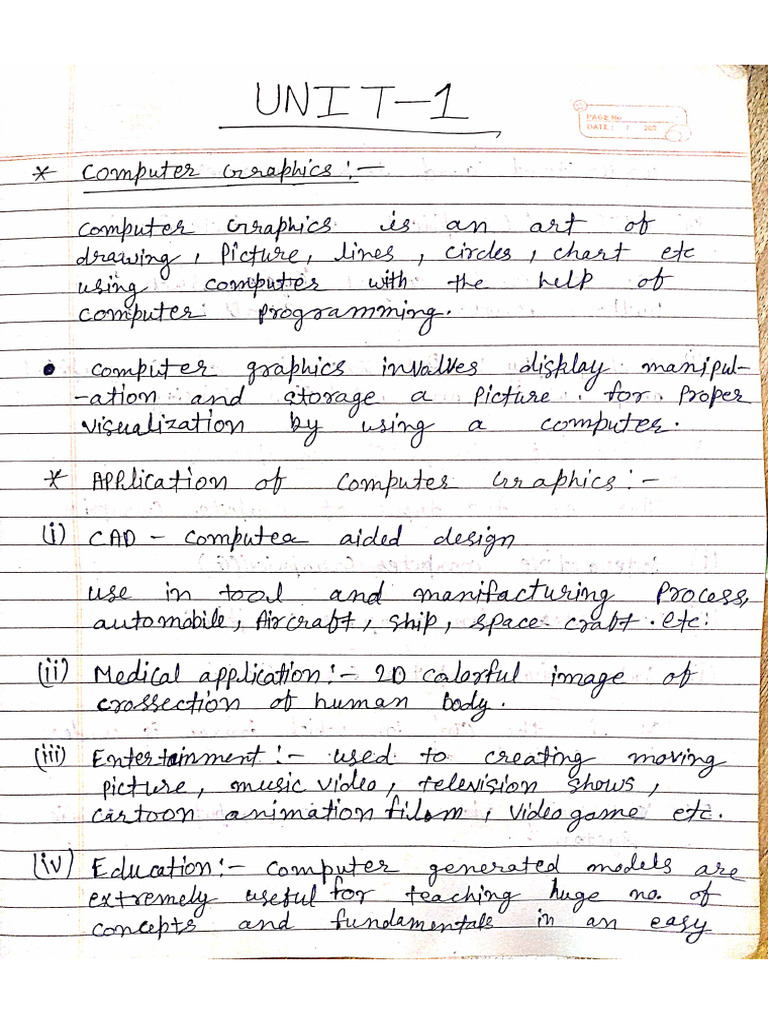 UNIT-1
PAGE No.
DATE: / / 202
* Computer Graphics :-
Computer Graphics is an art of
drawing, Picture, lines, circles, chart etc
using computer with the help of
computer programming.
• computer graphics involves display manipul-
-ation and storage a picture for proper
visualization by using a computer.
* Application of computer Graphics :-
(i) CAD - computer aided design
use in tool and manifacturing Process,
automobile, Aircraft, ship, space craft. etc.
(ii) Medical application :- 2D colorful image of
crossection of human body.
(iii) Entertainment :- used to creating moving
picture, music video, television shows,
cartoon animation film, Video game etc.
(iv) Education :- computer generated models are
extremely useful for teaching huge no. of
concepts and fundamentals in an easy